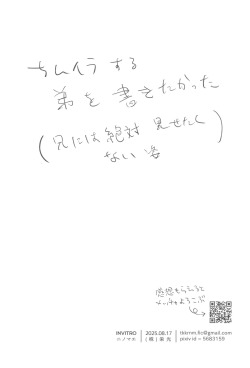 ちんイラする
弟を書きたかった
(兄には絶対見せたく
ない姿)
感想もらえると
メッチャよろこぶ
INVITRO
ニノマエ
2025.08.17
(株)栄光
tkkrnm.fic@gmail.com
pixiv id = 5683159